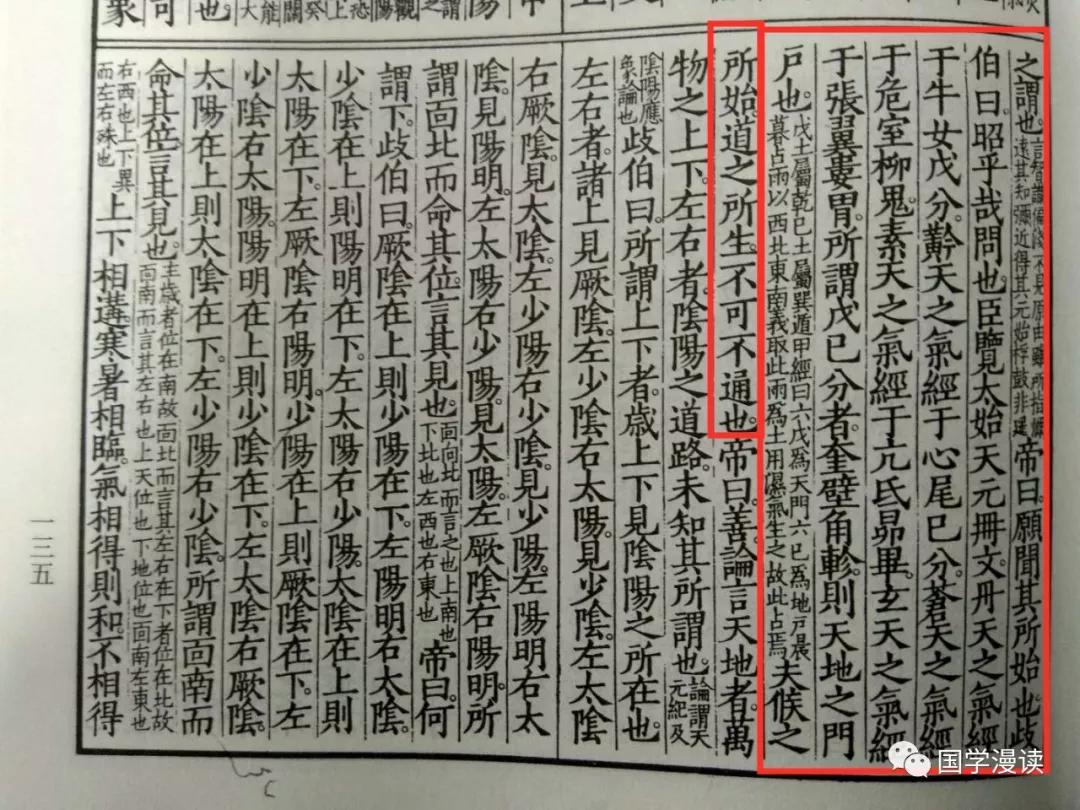 之謂也。言智識偏淺不見原由雖所指彌遠其知彌近得其元始桴鼓非遠帝曰。願聞其所始也歧
伯曰。昭乎哉問也。臣覽太始天元冊文。丹天之氣經
于牛女戊分。黅天之氣經于心尾己分。蒼天之氣經
于危室柳鬼。素天之氣經于亢氐昴畢。玄天之氣經
于張翼婁胃。所謂戊己分者。奎壁角軫。則天地之門
戶也。戊土屬乾己土屬巽遁甲經曰六戊為天門六己為地戶晨暮占雨以西北東南義取此雨為土用濕氣生之故此占焉夫候之
所始。道之所生。不可不通也。帝曰。善。論言天地者。萬
物之上下。左右者。陰陽之道路。未知其所謂也。論謂天元紀及
陰陽應象論也歧伯曰。所謂上下者。歲上下見陰陽之所在也。
左右者。諸上見厥陰。左少陰右太陽。見少陰。左太陰
右厥陰。見太陰。左少陽右少陰。見少陽。左陽明右太
陰。見陽明。左太陽右少陽。見太陽。左厥陰右陽明。所
謂面北而命其位。言其見也。面向北而言之也上南也下北也左西也右東也帝曰。何
謂下。歧伯曰。厥陰在上則少陽在下。左陽明右太陰。
少陰在上則陽明在下。左太陽右少陽。太陰在上則
太陽在下。左厥陰右陽明。少陽在上則厥陰在下。左
少陰右太陽。陽明在上則少陰在下。左太陰右厥陰。
太陽在上則太陰在下。左少陽右少陰。所謂面南而
命其位。言其見也。主歲者位在南故面北而言其左右在下者位在北故面南而言其左右也上天位也下地位也面南左東也
右西也上下異而左右殊也上下相遘。寒暑相臨。氣相得則和。不相得
一三五
国学漫读